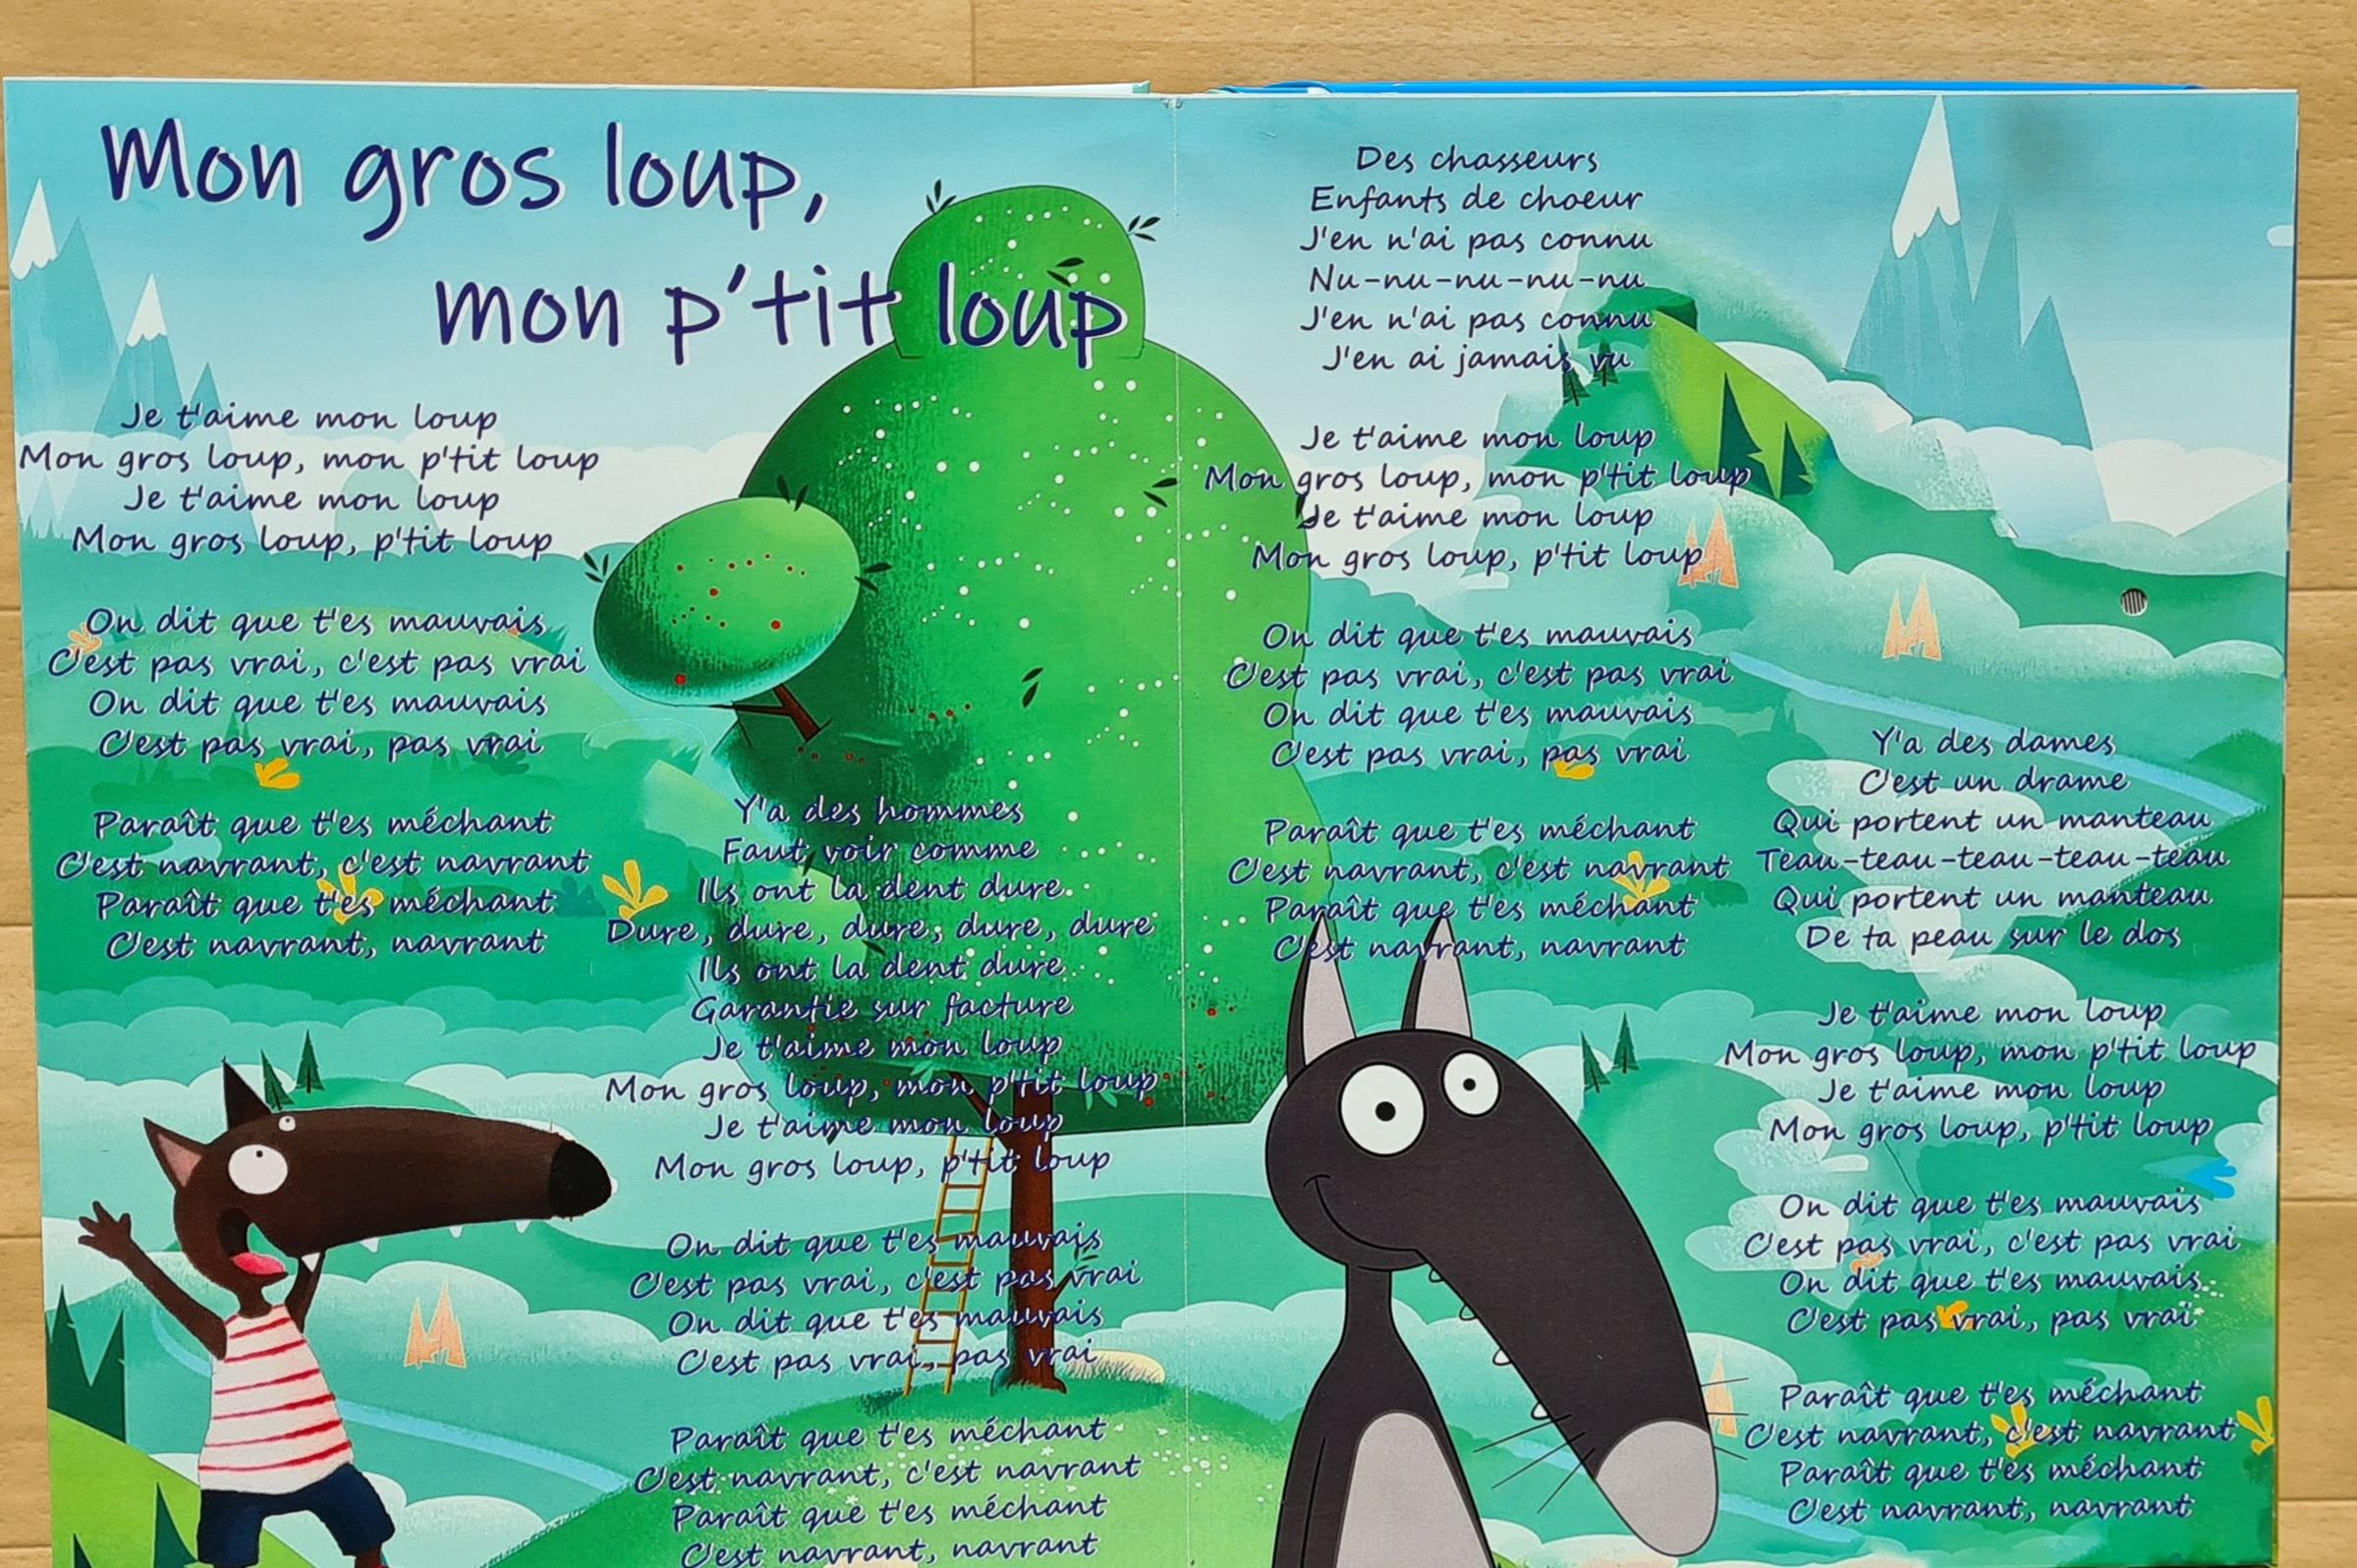 Mon gros loup,
mon p'tit loup
Je t'aime mon loup
Mon gros loup, mon p'tit loup
Je t'aime mon loup
Mon gros loup, p'tit loup
On dit que t'es mauvais
C'est pas vrai, c'est pas vrai
On dit que t'es mauvais
C'est pas vrai, pas vrai
Paraît que t'es méchant
C'est navrant, c'est navrant
Paraît que t'es méchant
C'est navrant, navrant
Y'a des hommes
Faut voir comme
Ils ont la dent dure
Dure, dure, dure, dure, dure
Ils ont la dent dure
Garantie sur facture
Je t'aime mon loup
Mon gros loup, mon p'tit loup
Je t'aime mon loup
Mon gros loup, p'tit loup
On dit que t'es mauvais
C'est pas vrai, c'est pas vrai
On dit que t'es mauvais
C'est pas vrai, pas vrai
Paraît que t'es méchant
C'est navrant, c'est navrant
Paraît que t'es méchant
C'est navrant, navrant
Des chasseurs
Enfants de choeur
J'en n'ai pas connu
Nu-nu-nu-nu-nu
J'en n'ai pas connu
J'en ai jamais vu
Je t'aime mon loup
Mon gros loup, mon p'tit loup
Je t'aime mon loup
Mon gros loup, p'tit loup
On dit que t'es mauvais
C'est pas vrai, c'est pas vrai
On dit que t'es mauvais
C'est pas vrai, pas vrai
Paraît que t'es méchant
C'est navrant, c'est navrant
Paraît que t'es méchant
C'est navrant, navrant
Y'a des dames
C'est un drame
Qui portent un manteau
Teau-teau-teau-teau-teau
Qui portent un manteau
De ta peau sur le dos
Je t'aime mon loup
Mon gros loup, mon p'tit loup
Je t'aime mon loup
Mon gros loup, p'tit loup
On dit que t'es mauvais
C'est pas vrai, c'est pas vrai
On dit que t'es mauvais
C'est pas vrai, pas vrai
Paraît que t'es méchant
C'est navrant, c'est navrant
Paraît que t'es méchant
C'est navrant, navrant